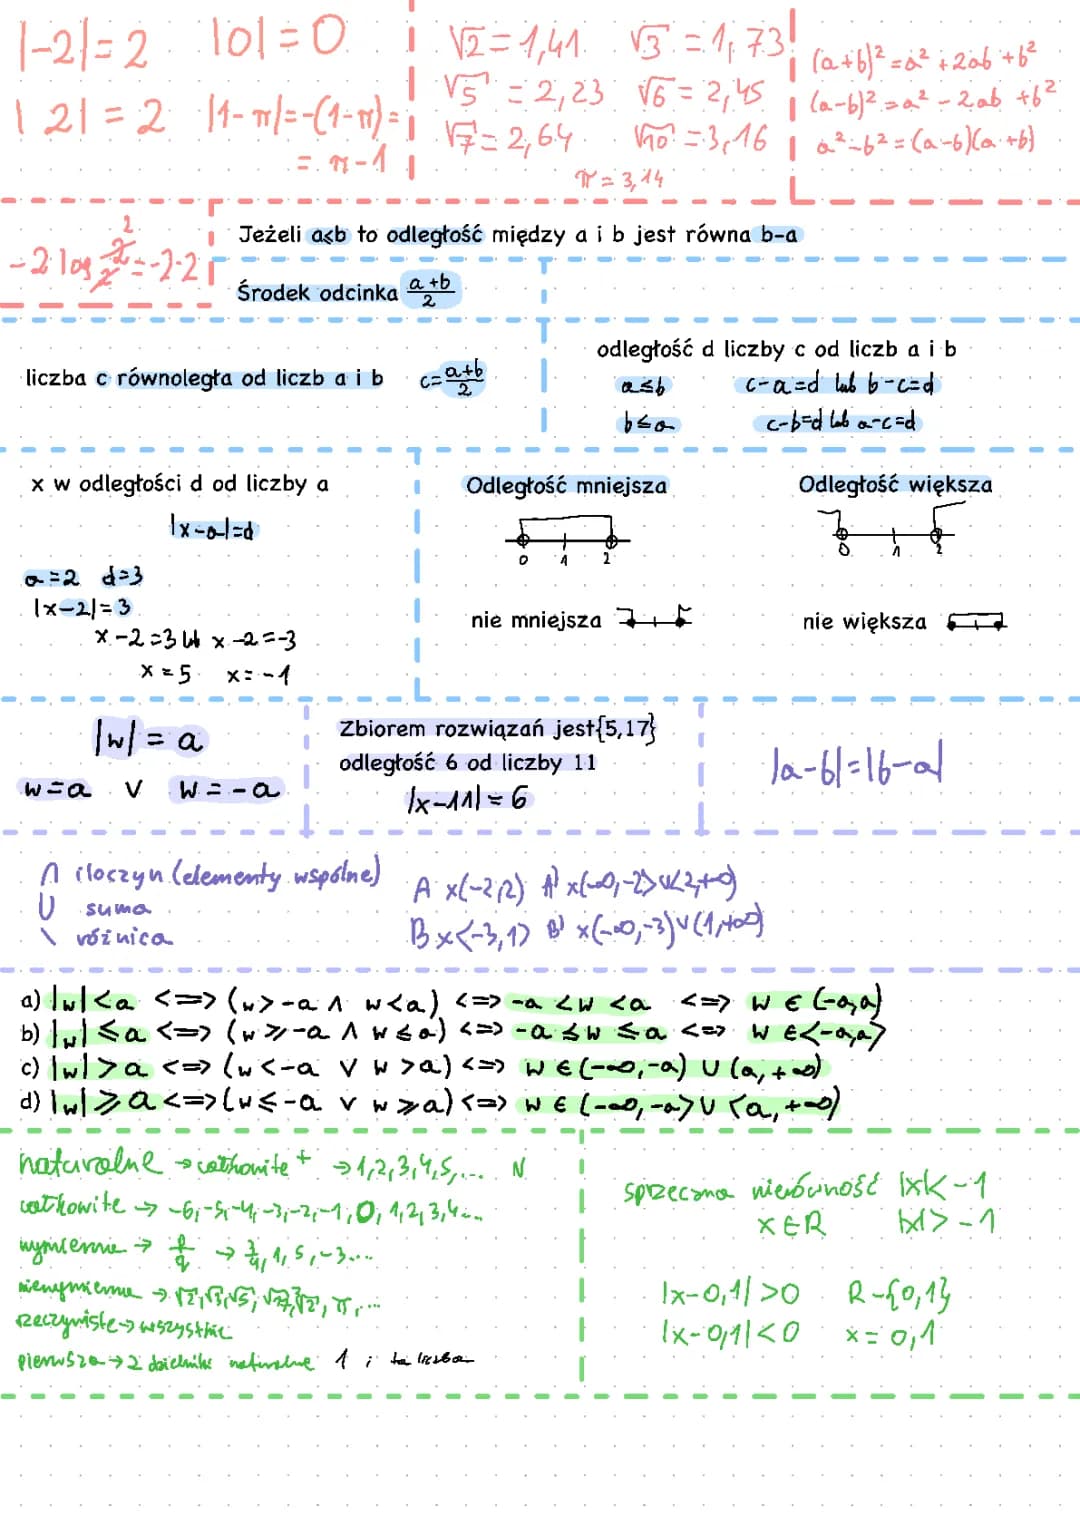 |-2|=2 |0|=0
|2|=2 |1-π|=-(1-π)=
=π-1
√2=1,41 √3=1,73
√5=2,23 √6=2,45
√7=2,64 √10=3,16
π=3,14
(a+b)²=a²+2ab+b²
(a-b)²=a²-2ab+b²
a²-b²=(a-b)(a+b)
Jeżeli a≤b to odległość między a i b jest równa b-a
Środek odcinka a+b/2
liczba c równoległa od liczb a i b c=a+b/2
odległość d liczby c od liczb a i b
a≤b c-a=d lub b-c=d
b≤a c-b=d lub a-c=d
x w odległości d od liczby a
|x-a|=d
a=2 d=3
|x-2|=3
x-2=3 lub x-2=-3
x=5 x=-1
Odległość mniejsza
0 1 2
nie mniejsza
Odległość większa
0 1 2
nie większa
|w|=a
w=a v w=-a
Zbiorem rozwiązań jest{5,17}
odległość 6 od liczby 11
|x-11|=6
|a-b|=|b-a|
∩ iloczyn (elementy wspólne)
∪ suma
\ różnica
A x(-2,2) A' x(-∞,-2>∪<2,+∞)
B x<-3,1> B' x(-∞,-3)∪(1,+∞)
a) |w|<a <=> (w>-a ∧ w<a) <=> -a<w<a <=> w∈(-a,a)
b) |w|≤a <=> (w≥-a ∧ w≤a) <=> -a≤w≤a <=> w∈<-a,a>
c) |w|>a <=> (w<-a v w>a) <=> w∈(-∞,-a)∪(a,+∞)
d) |w|≥a <=> (w≤-a v w≥a) <=> w∈(-∞,-a>∪<a,+∞)
naturalne → całkowite + → 1,2,3,4,5,... N
całkowite → -6,-5,-4,-3,-2,-1,0,1,2,3,4...
wymierne → p/q → 3/4,1,5,-3...
niewymierne → √2,√3,√5,√7,³√2,π,...
rzeczywiste → wszystkie
pierwsza → 2 dzielniki naturalne 1 i ta liczba
sprzeczna nierówność |x|<-1
x∈R |x|>-1
|x-0,1|>0 R-{0,1}
|x-0,1|<0 x=0,1